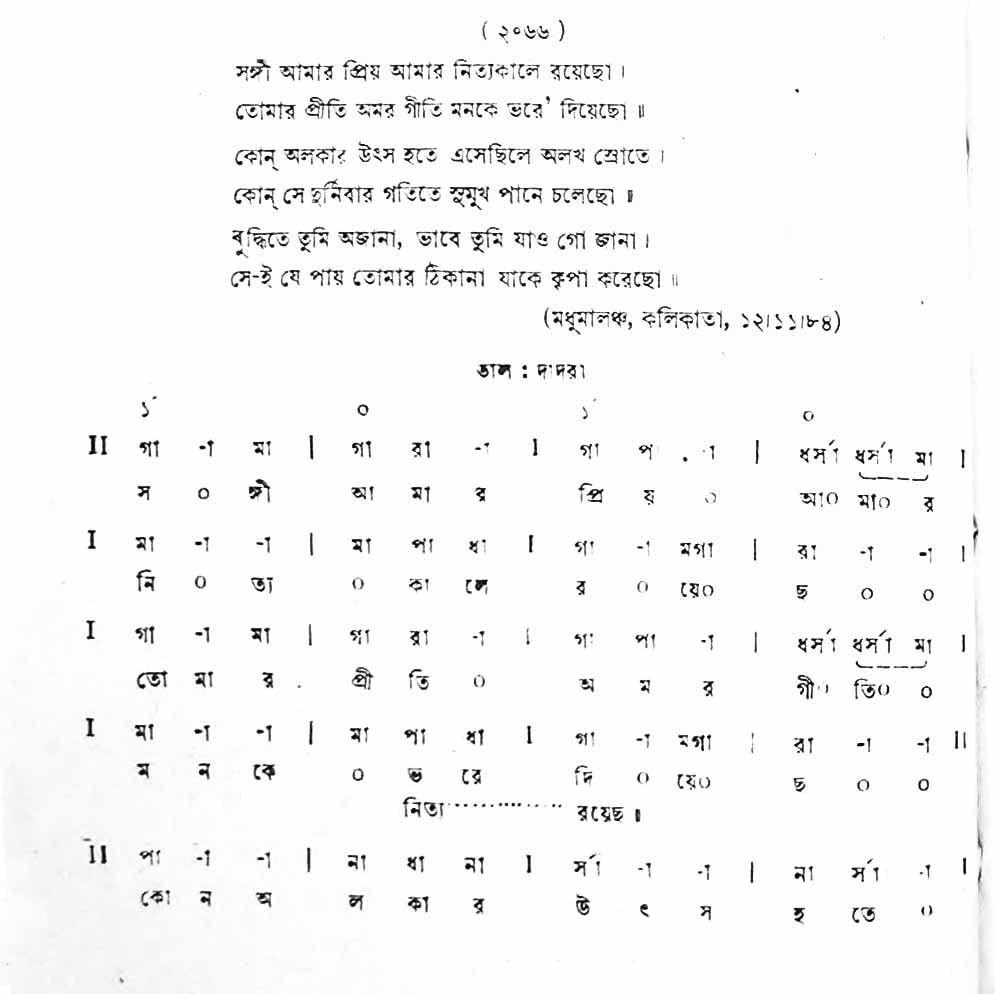 ( ২০৬৬ )
সঙ্গী আমার প্রিয় আমার নিত্যকালে রয়েছো ।
তোমার প্রীতি অমর গীতি মনকে ভরে' দিয়েছো ॥
কোন্ অলকার উৎস হতে এসেছিলে অলখ স্রোতে ।
কোন্ সে দুর্নিবার গতিতে সুমুখ পানে চলেছো ॥
বুদ্ধিতে তুমি অজানা, ভাবে তুমি যাও গো জানা ।
সে-ই যে পায় তোমার ঠিকানা যাকে কৃপা করেছো ॥
(মধুমালঞ্চ, কলিকাতা, ১২।১১।৮৪)
তাল : দাদরা
১´ ০ ১´ ০
II গা -া মা | গা রা -া I গা প -া | ধর্সা ধর্সা মা I
স ০ ঙ্গী আ মা র প্রি য় ০ আ০ মা০ র
I মা -া -া | মা পা ধা I গা -া মগা | রা -া -া I
নি ০ ত্য ০ কা লে র ০ য়ে০ ছ ০ ০
I গা -া মা | গা রা -া I গা পা -া | ধর্সা ধর্সা মা I
তো মা র . প্রী তি ০ অ ম র গী০ তি০ ০
I মা -া -া | মা পা ধা I গা -া মগা | রা -া -া II
ম ন কে ০ ভ রে দি ০ য়ে০ ছ ০ ০
নিত্য ·············· রয়েছ ॥
II পা -া -া | না ধা না I র্সা -া -া | না র্সা -া I
কো ন অ ল কা র উ ৎ স হ তে ০